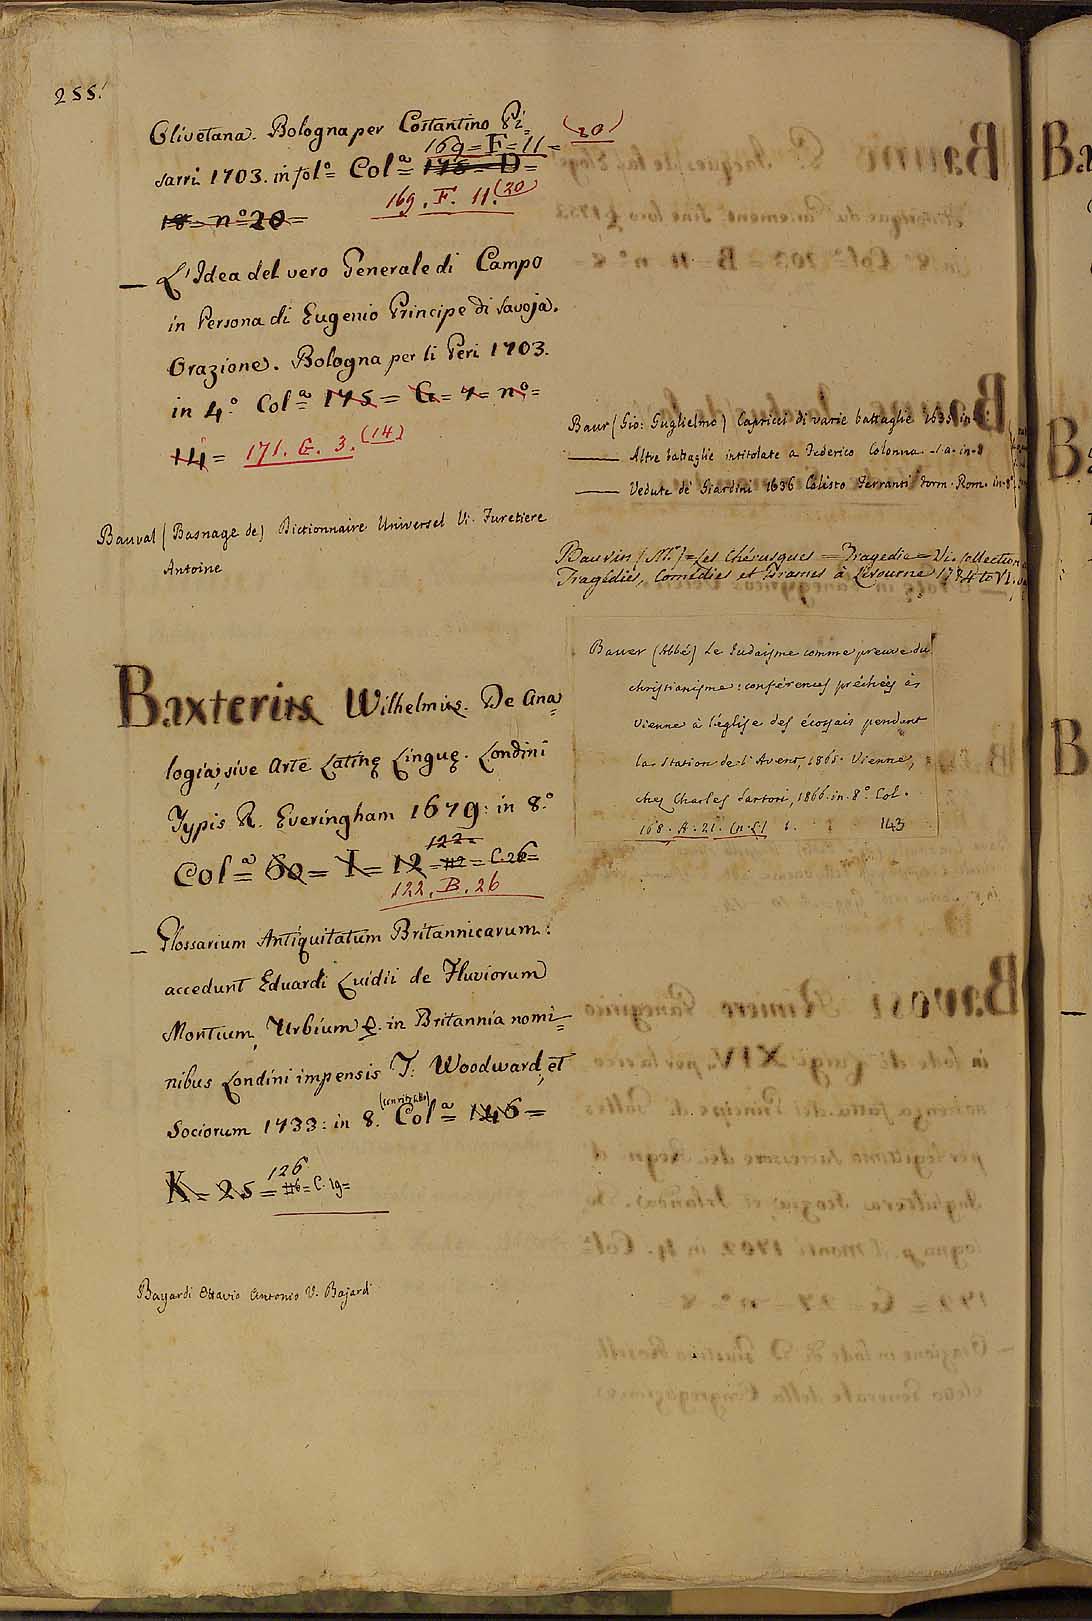 255.
Olivetana. Bologna per Costantino Pi=
(20)
169=F=11=
sarri 1703. in fol.o= Col.a= 175=D=
169. F. 11. (20)
18= n.o 20=
— L'Idea del vero Generale di Campo
in Persona di Eugenio Principe di Savoja.
Orazione. Bologna per li Peri 1703.
in 4.o Col.a= 175= G= 7= n.o=
14= 171. G. 3. (14)
Bauval (Basnage de) Dictionnaire Universel Vi. Furetiere
Antoine
Baxterius Wilhelmus. De Ana=
logia, sive Arte Latinę Linguę. Londini
Typis R. Everingham 1679: in 8.o
122=
Col.a= 60= I= 12= = C.26=
122. B. 26
— Glossarium Antiquitatum Britannicarum:
accedunt Eduardi Luidii de Fluviorum
Montium, Urbium &. in Britannia nomi=
nibus Londini impensis T. Woodward, et
Sociorum 1733: in 8. Col.a= 146=
126
K= 25= = C. 19=
Bayardi Ottavio Antonio V. Bajardi
Baur (Gio: Guglielmo) Capricci di varie battaglie 1635 in
—— Altre battaglie intitolate a Federico Colonna. -s.a- in-8
—— Vedute de' Giardini 1636 Calisto Ferranti form. Rom. in-8.o
Bauvin (Mr.)= Les Chérusques = Tragedie = Vi. Collection
Tragédies, Comédies et Drames à Livourne 1774 to VI.
Bauer (Abbé) Le Judaisme comme preuve du
christianisme: conférences prêchées à
Vienne à l'église des écossais pendant
la station de l'Avent, 1865. Vienne,
chez Charles Sartori, 1866. in. 8.o Col.
168. A. 21. (n.L) 143